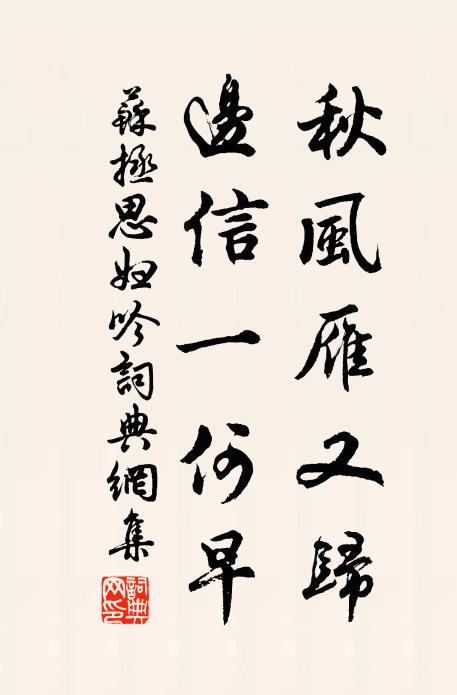 秋風雁又歸
邊信一何早
蘇拯思婦吟詞典網集
詞典網印